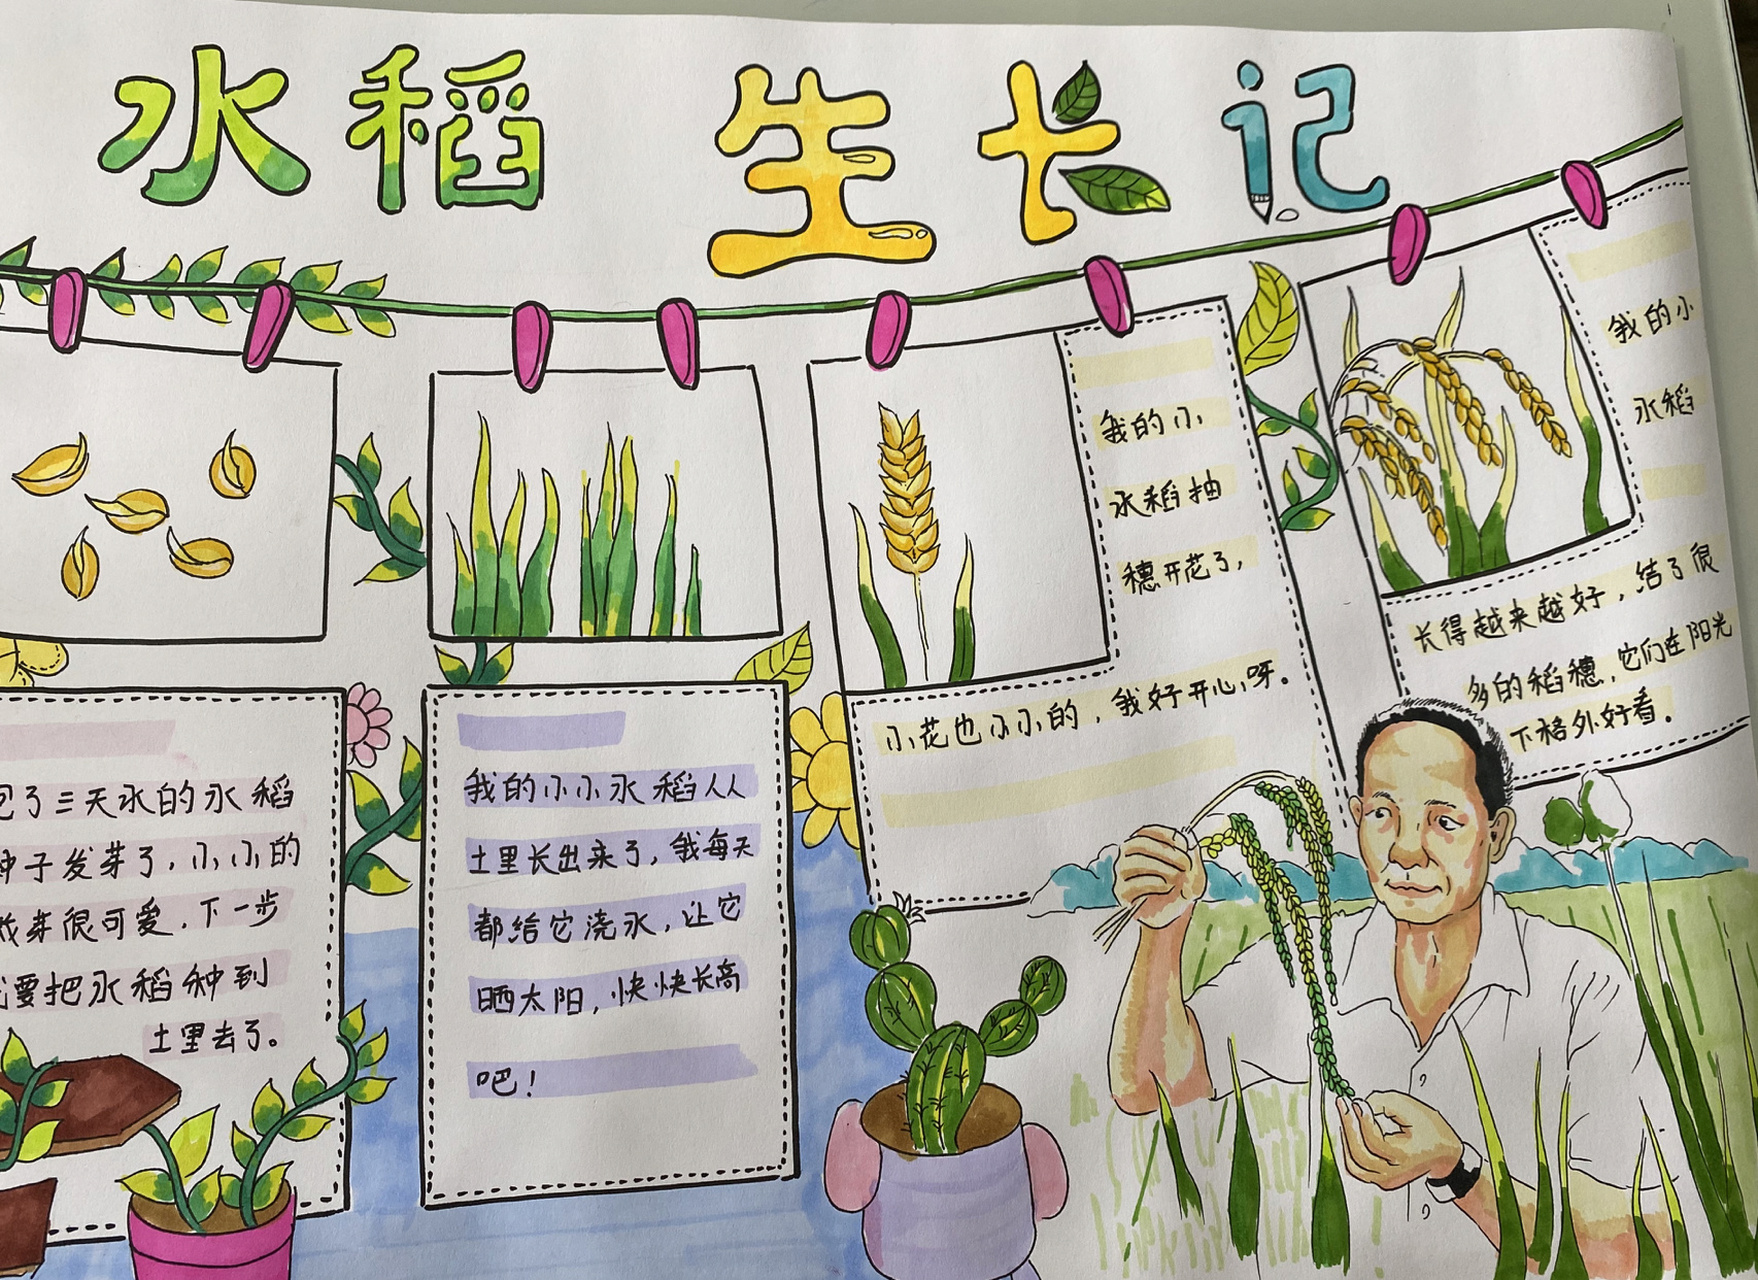 水稻生长记
了三天水的水稻
种子发芽了，小小的
芽很可爱，下一步
要把水稻种到
土里去了。
我的小小水稻从
土里长出来了，我每天
都给它浇水，让它
晒太阳，快快长高
吧！
我的小
水稻抽
穗开花了，
小花也小小的，我好开心呀。
我的小
水稻
长得越来越好，结了很
多的稻穗，它们在阳光
下格外好看。